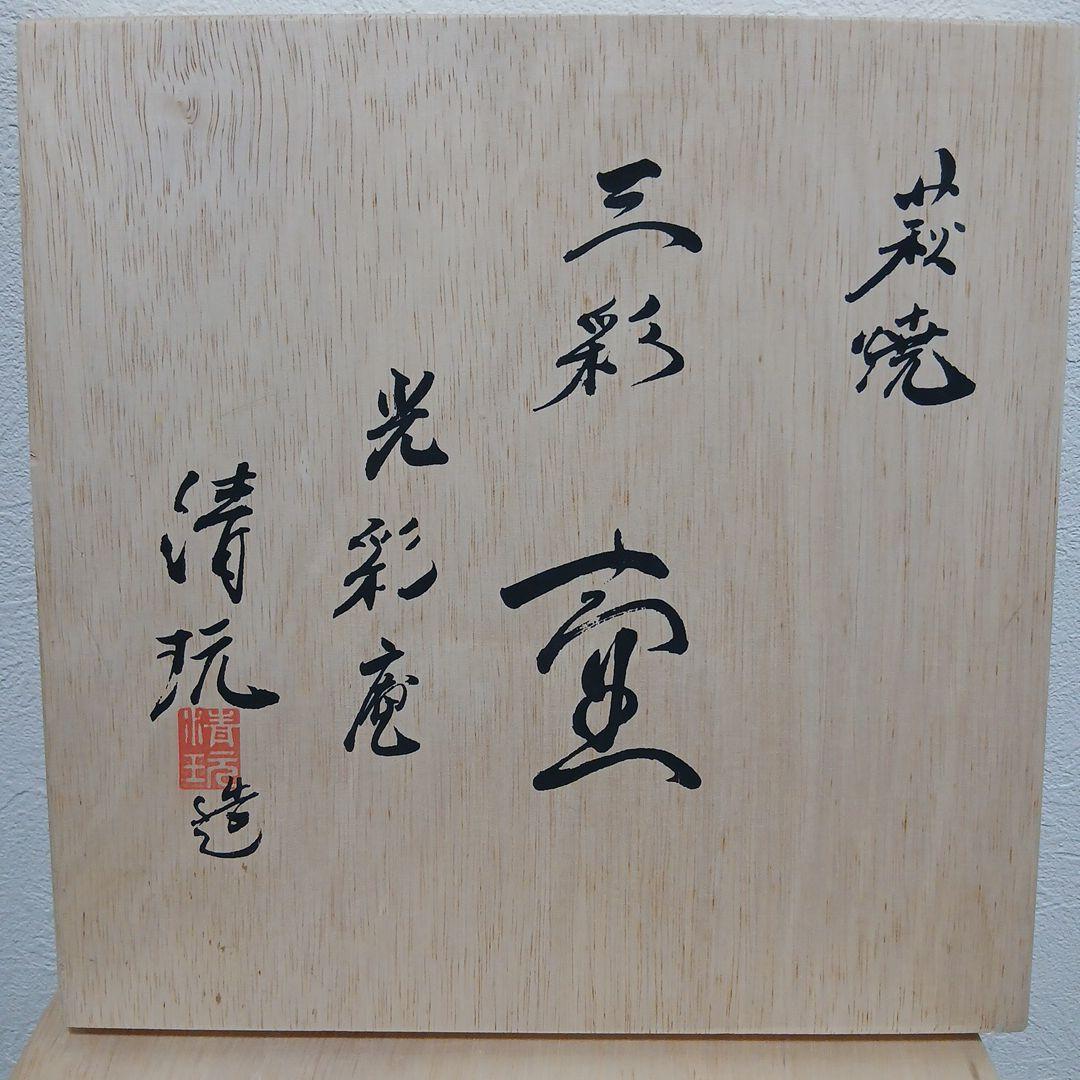 萩焼
三彩
壷
光彩庵
清玩
造
清玩